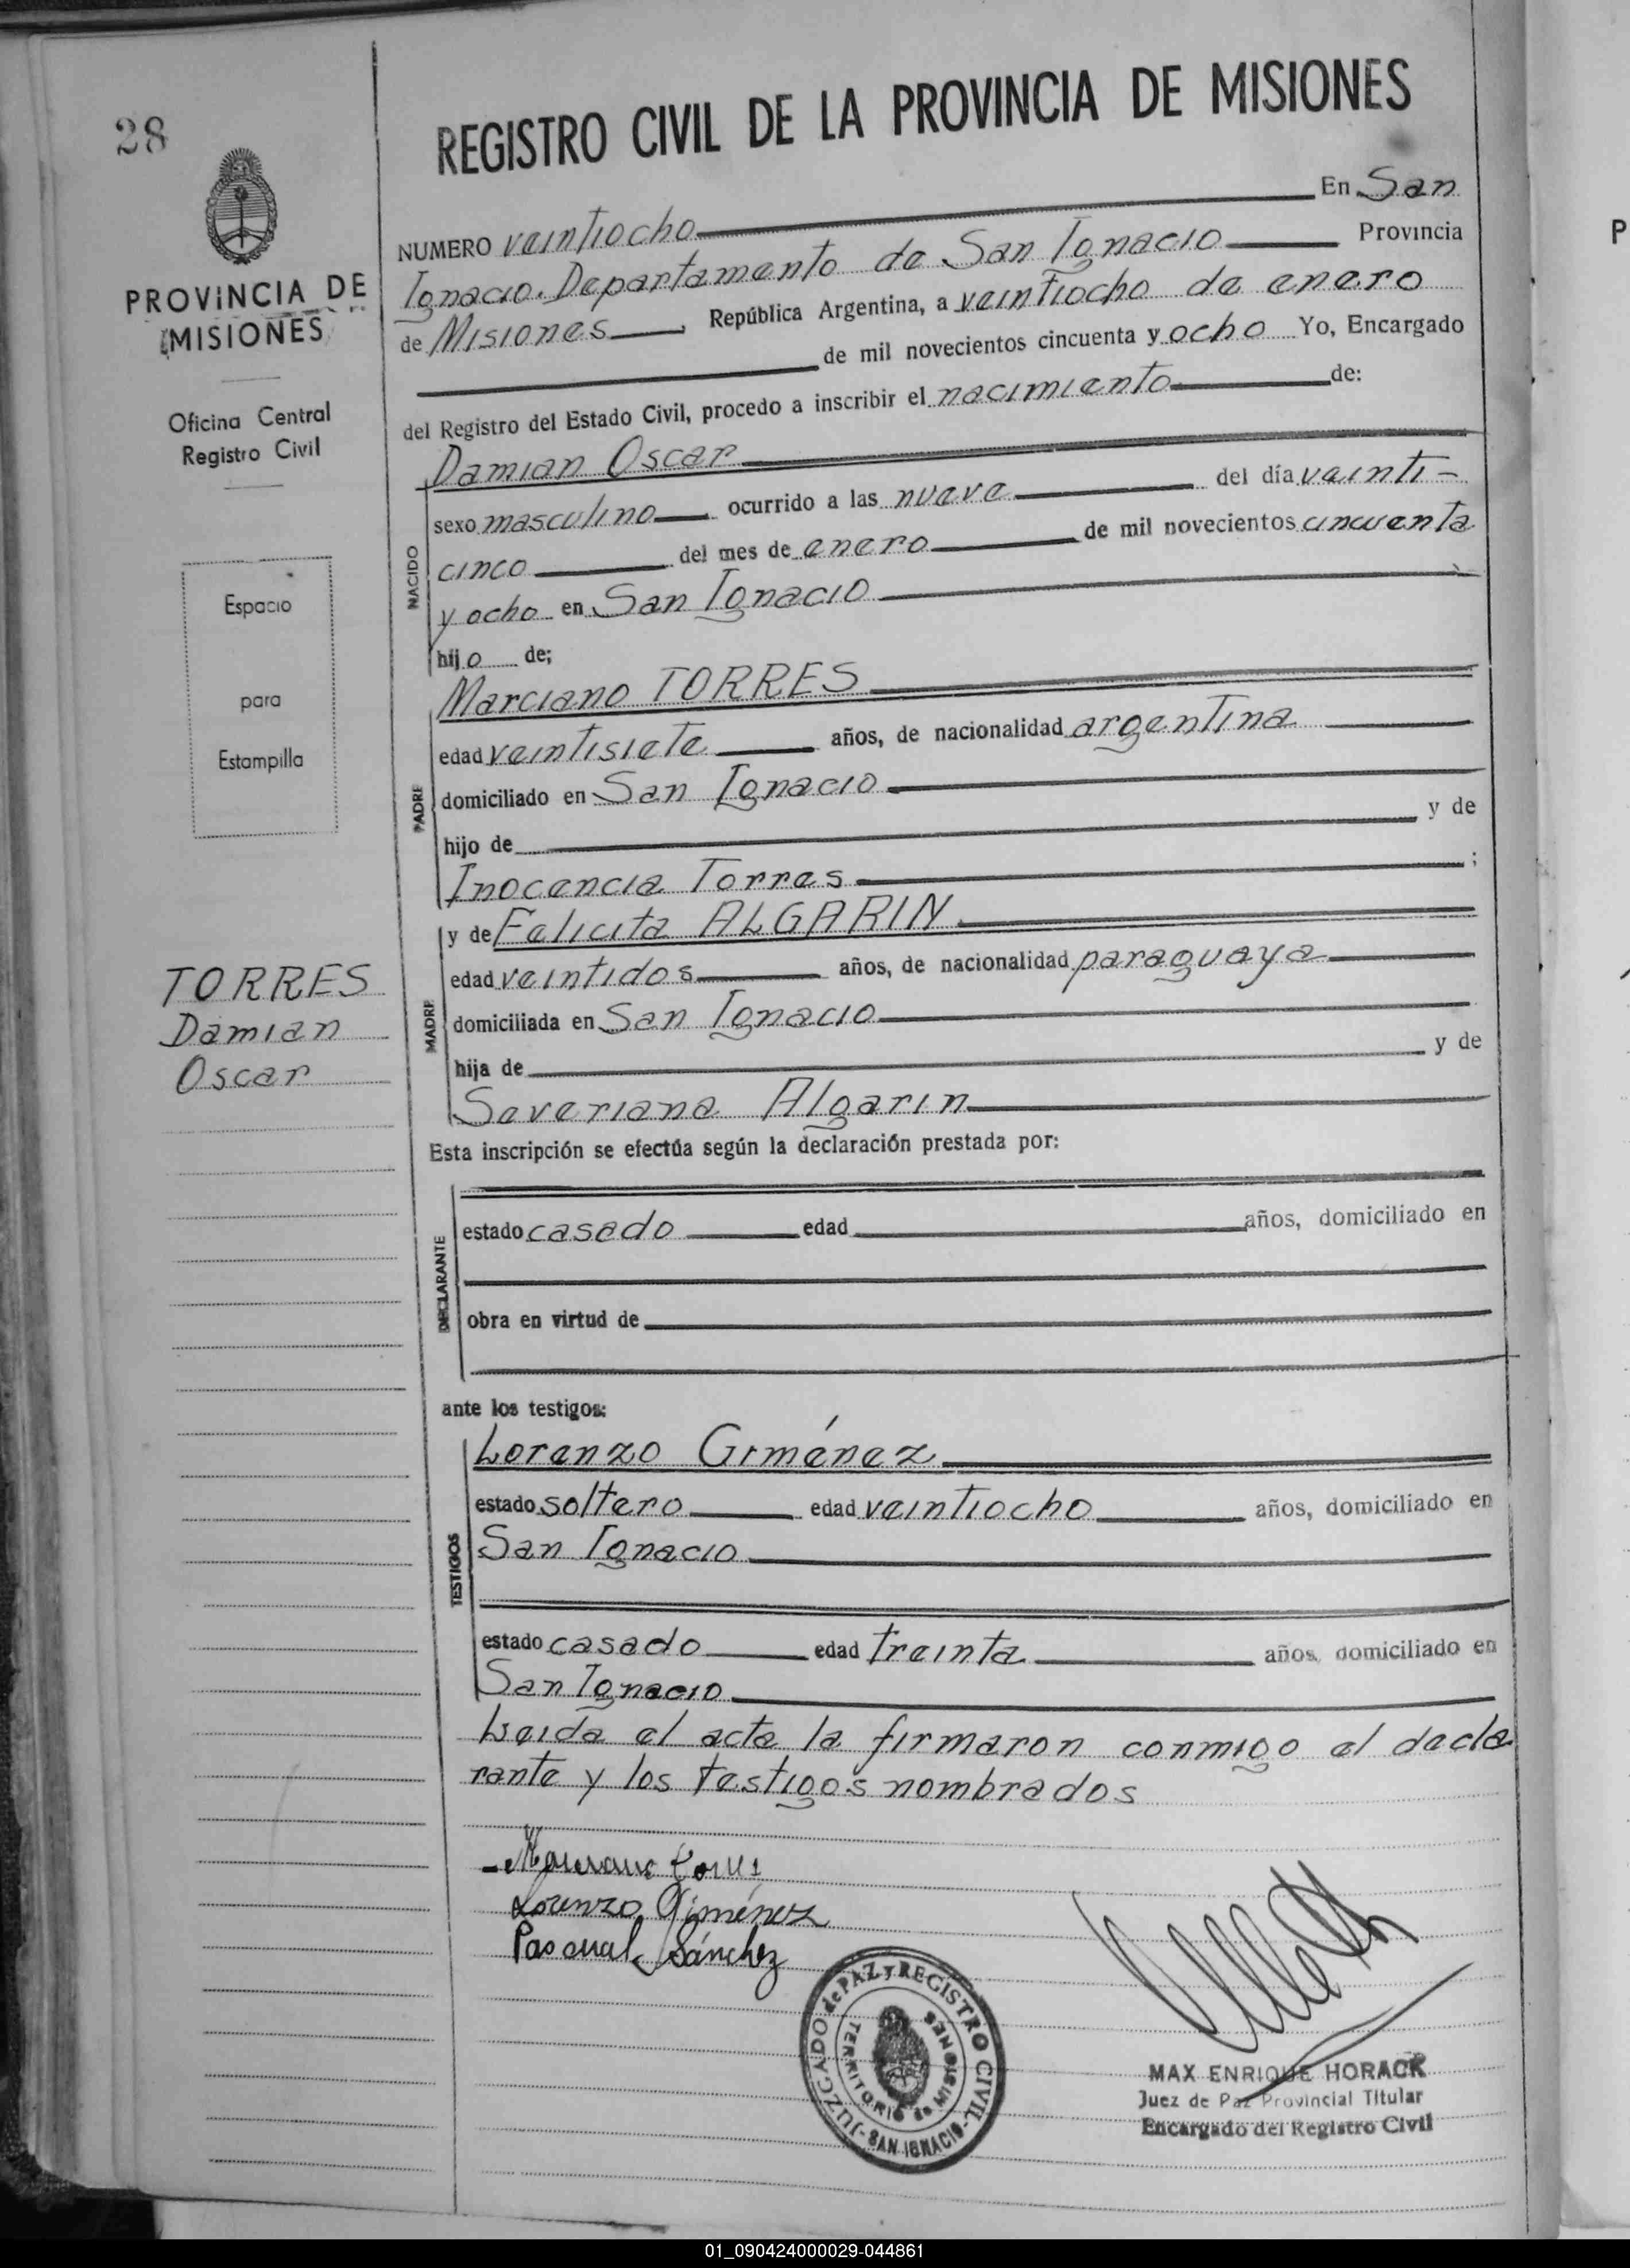 28
PROVINCIA DE
MISIONES
Oficina Central
Registro Civil
Espacio
para
Estampilla
TORRES
Damian
Oscar
REGISTRO CIVIL DE LA PROVINCIA DE MISIONES
NUMERO veintiocho En San
Ignacio. Departamento de San Ignacio Provincia
de Misiones República Argentina, a veintiocho de enero
de mil novecientos cincuenta y ocho Yo, Encargado
del Registro del Estado Civil, procedo a inscribir el nacimiento de:
NACIDO
Damian Oscar
sexo masculino ocurrido a las nueve del día veinti-
cinco del mes de enero de mil novecientos cincuenta
y ocho en San Ignacio
hijo de;
PADRE
Marciano TORRES
edad veintisiete años, de nacionalidad argentina
domiciliado en San Ignacio
hijo de y de
Inocencia Torres ;
MADRE
y de Felicita ALGARIN
edad veintidos años, de nacionalidad paraguaya
domiciliada en San Ignacio
hija de y de
Severiana Algarin
Esta inscripción se efectúa según la declaración prestada por:
DECLARANTE
estado casado edad años, domiciliado en
obra en virtud de
ante los testigos:
TESTIGOS
Lorenzo Giménez
estado soltero edad veintiocho años, domiciliado en
San Ignacio
estado casado edad treinta años, domiciliado en
San Ignacio
Leida el acta la firmaron conmigo el decla
rante y los testigos nombrados
Marciano Torres
Lorenzo Giménez
Pascual Sánchez
JUZGADO de PAZ y REGISTRO CIVIL
TERRITORIO de MISIONES
-SAN IGNACIO-
MAX ENRIQUE HORACK
Juez de Paz Provincial Titular
Encargado del Registro Civil
P
01_090424000029-044861